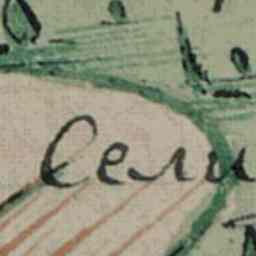 Сели